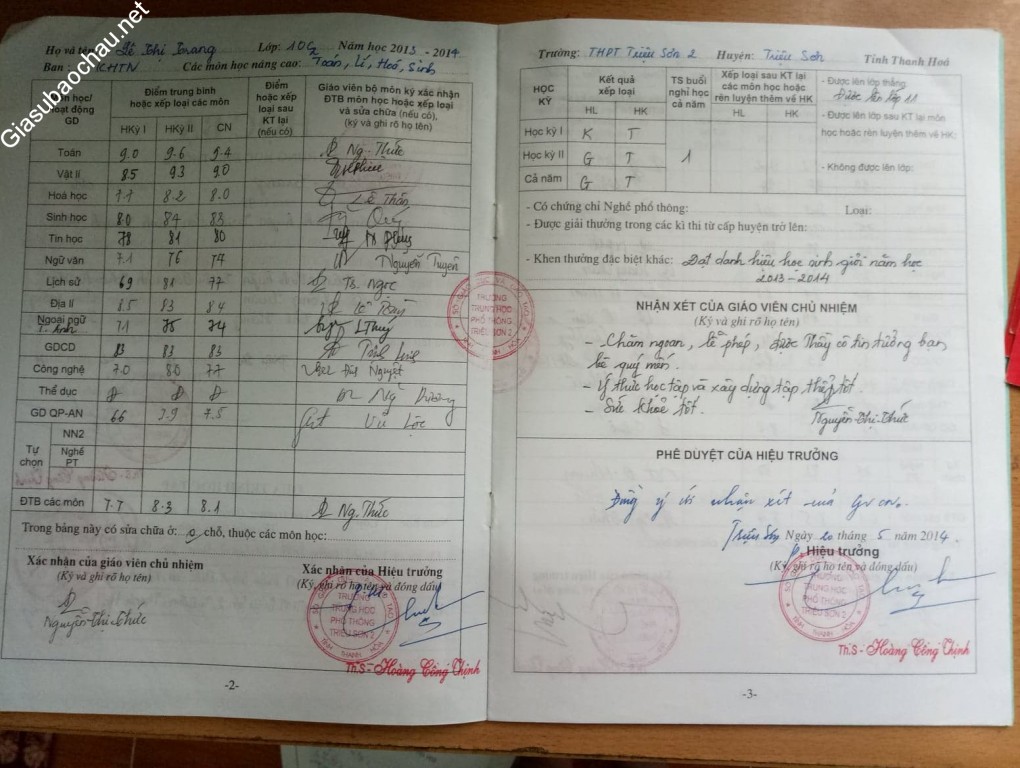 Giasubaochau.net
Họ và tên: Lê Thị Trang Lớp: 10C2 Năm học 2013 - 2014
Ban: KHTN Các môn học nâng cao: Toán, Lí, Hoá, Sinh
Môn học/ Hoạt động GD
Điểm trung bình hoặc xếp loại các môn
HKỳ I HKỳ II CN
Điểm hoặc xếp loại sau KT lại (nếu có)
Giáo viên bộ môn ký xác nhận ĐTB môn học hoặc xếp loại và sửa chữa (nếu có), (ký và ghi rõ họ tên)
Toán 9.0 9.6 9.4 Ng-Thức
Vật lí 8.5 9.3 9.0
Hoá học 7.7 8.2 8.0 Lê Thân
Sinh học 8.0 8.4 8.3 Quý
Tin học 7.8 8.1 8.0
Ngữ văn 7.1 7.6 7.4 Nguyễn Tuyên
Lịch sử 6.9 8.1 7.7 Ts. Ngọc
Địa lí 8.5 8.3 8.4
Ngoại ngữ T. Anh 7.1 7.5 7.4 L Thuỷ
GDCD 8.3 8.3 8.3
Công nghệ 7.0 8.0 7.7 Nguyệt
Thể dục Đ Đ Đ Ng Dương
GD QP-AN 6.6 7.9 7.5 Vũ Lộc
Tự chọn
NN2
Nghề PT
ĐTB các môn 7.7 8.3 8.1 Ng. Thức
Trong bảng này có sửa chữa ở: 0 chỗ, thuộc các môn học:
Xác nhận của giáo viên chủ nhiệm
(Ký và ghi rõ họ tên)
Nguyễn Thị Thức
Xác nhận của Hiệu trưởng
(Ký, ghi rõ họ tên và đóng dấu)
SỞ GIÁO DỤC VÀ ĐÀO TẠO
TRƯỜNG
TRUNG HỌC
PHỔ THÔNG
TRIỆU SƠN 2
TỈNH THANH HÓA
Th.S - Hoàng Công Thịnh
-2-
Trường: THPT Triệu Sơn 2 Huyện: Triệu Sơn Tỉnh Thanh Hoá
HỌC KỲ
Kết quả xếp loại
HL HK
TS buổi nghỉ học cả năm
Xếp loại sau KT lại các môn học hoặc rèn luyện thêm về HK
HL HK
- Được lên lớp thẳng
Được lên lớp 11
- Được lên lớp sau KT lại môn học hoặc rèn luyện thêm về HK:
- Không được lên lớp:
Học kỳ I K T
Học kỳ II G T 1
Cả năm G T
- Có chứng chỉ Nghề phổ thông: Loại:
- Được giải thưởng trong các kì thi từ cấp huyện trở lên:
- Khen thưởng đặc biệt khác: Đạt danh hiệu học sinh giỏi năm học
2013-2014
SỞ GIÁO DỤC VÀ ĐÀO TẠO
TRƯỜNG
TRUNG HỌC
PHỔ THÔNG
TRIỆU SƠN 2
NHẬN XÉT CỦA GIÁO VIÊN CHỦ NHIỆM
(Ký và ghi rõ họ tên)
- Chăm ngoan, lễ phép, được thầy cô tin tưởng bạn
bè quý mến.
- Ý thức học tập và xây dựng tập thể tốt.
- Sức khoẻ tốt.
Nguyễn Thị Thức
PHÊ DUYỆT CỦA HIỆU TRƯỞNG
Đồng ý với nhận xét của GVCN.
Triệu Sơn Ngày 20 tháng 5 năm 2014.
Hiệu trưởng
(Ký, ghi rõ họ tên và đóng dấu)
SỞ GIÁO DỤC VÀ ĐÀO TẠO
TRƯỜNG
TRUNG HỌC
PHỔ THÔNG
TRIỆU SƠN 2
TỈNH THANH HÓA
Th.S - Hoàng Công Thịnh
-3-